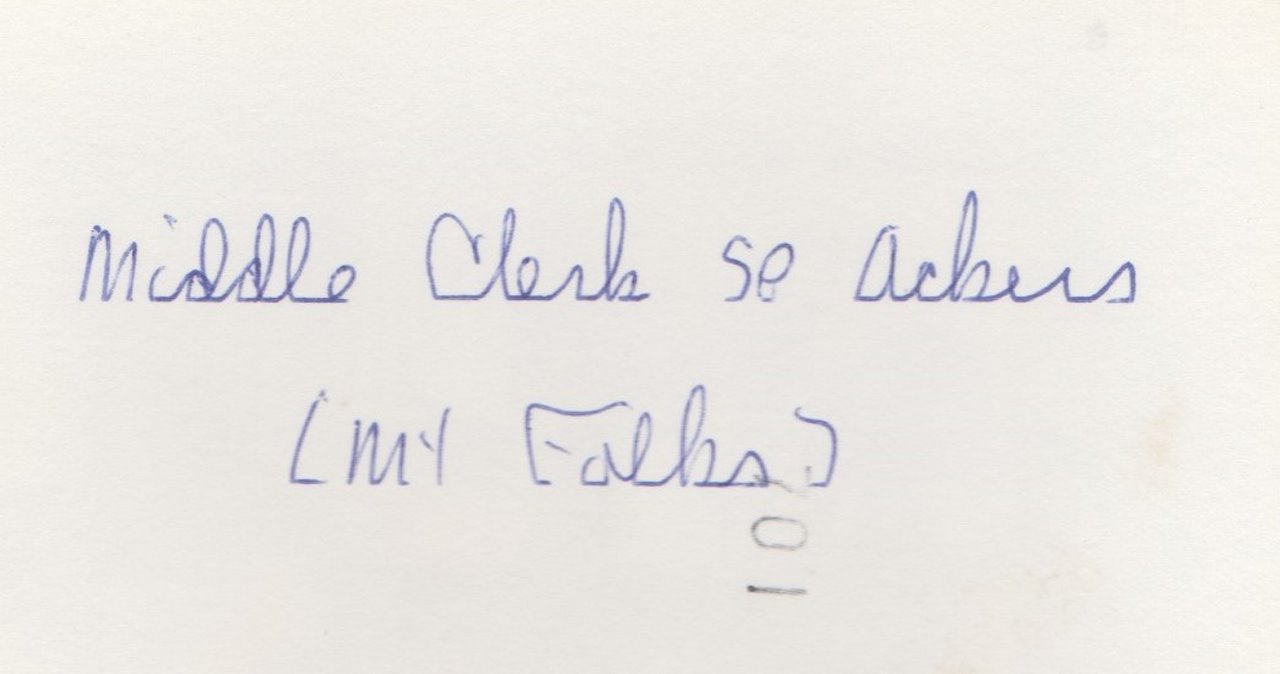 Middle Clerk SP Ackers
(MY Folks)
10